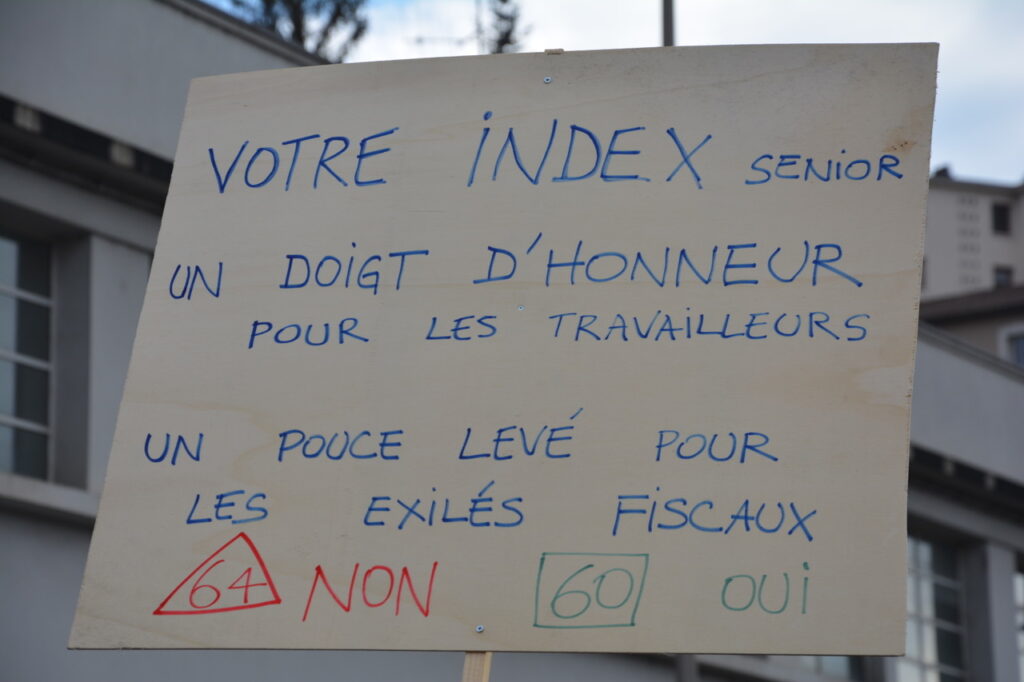 VOTRE INDEX SENIOR
UN DOIGT D'HONNEUR
POUR LES TRAVAILLEURS
UN POUCE LEVÉ POUR
LES EXILÉS FISCAUX
64 NON 60 OUI